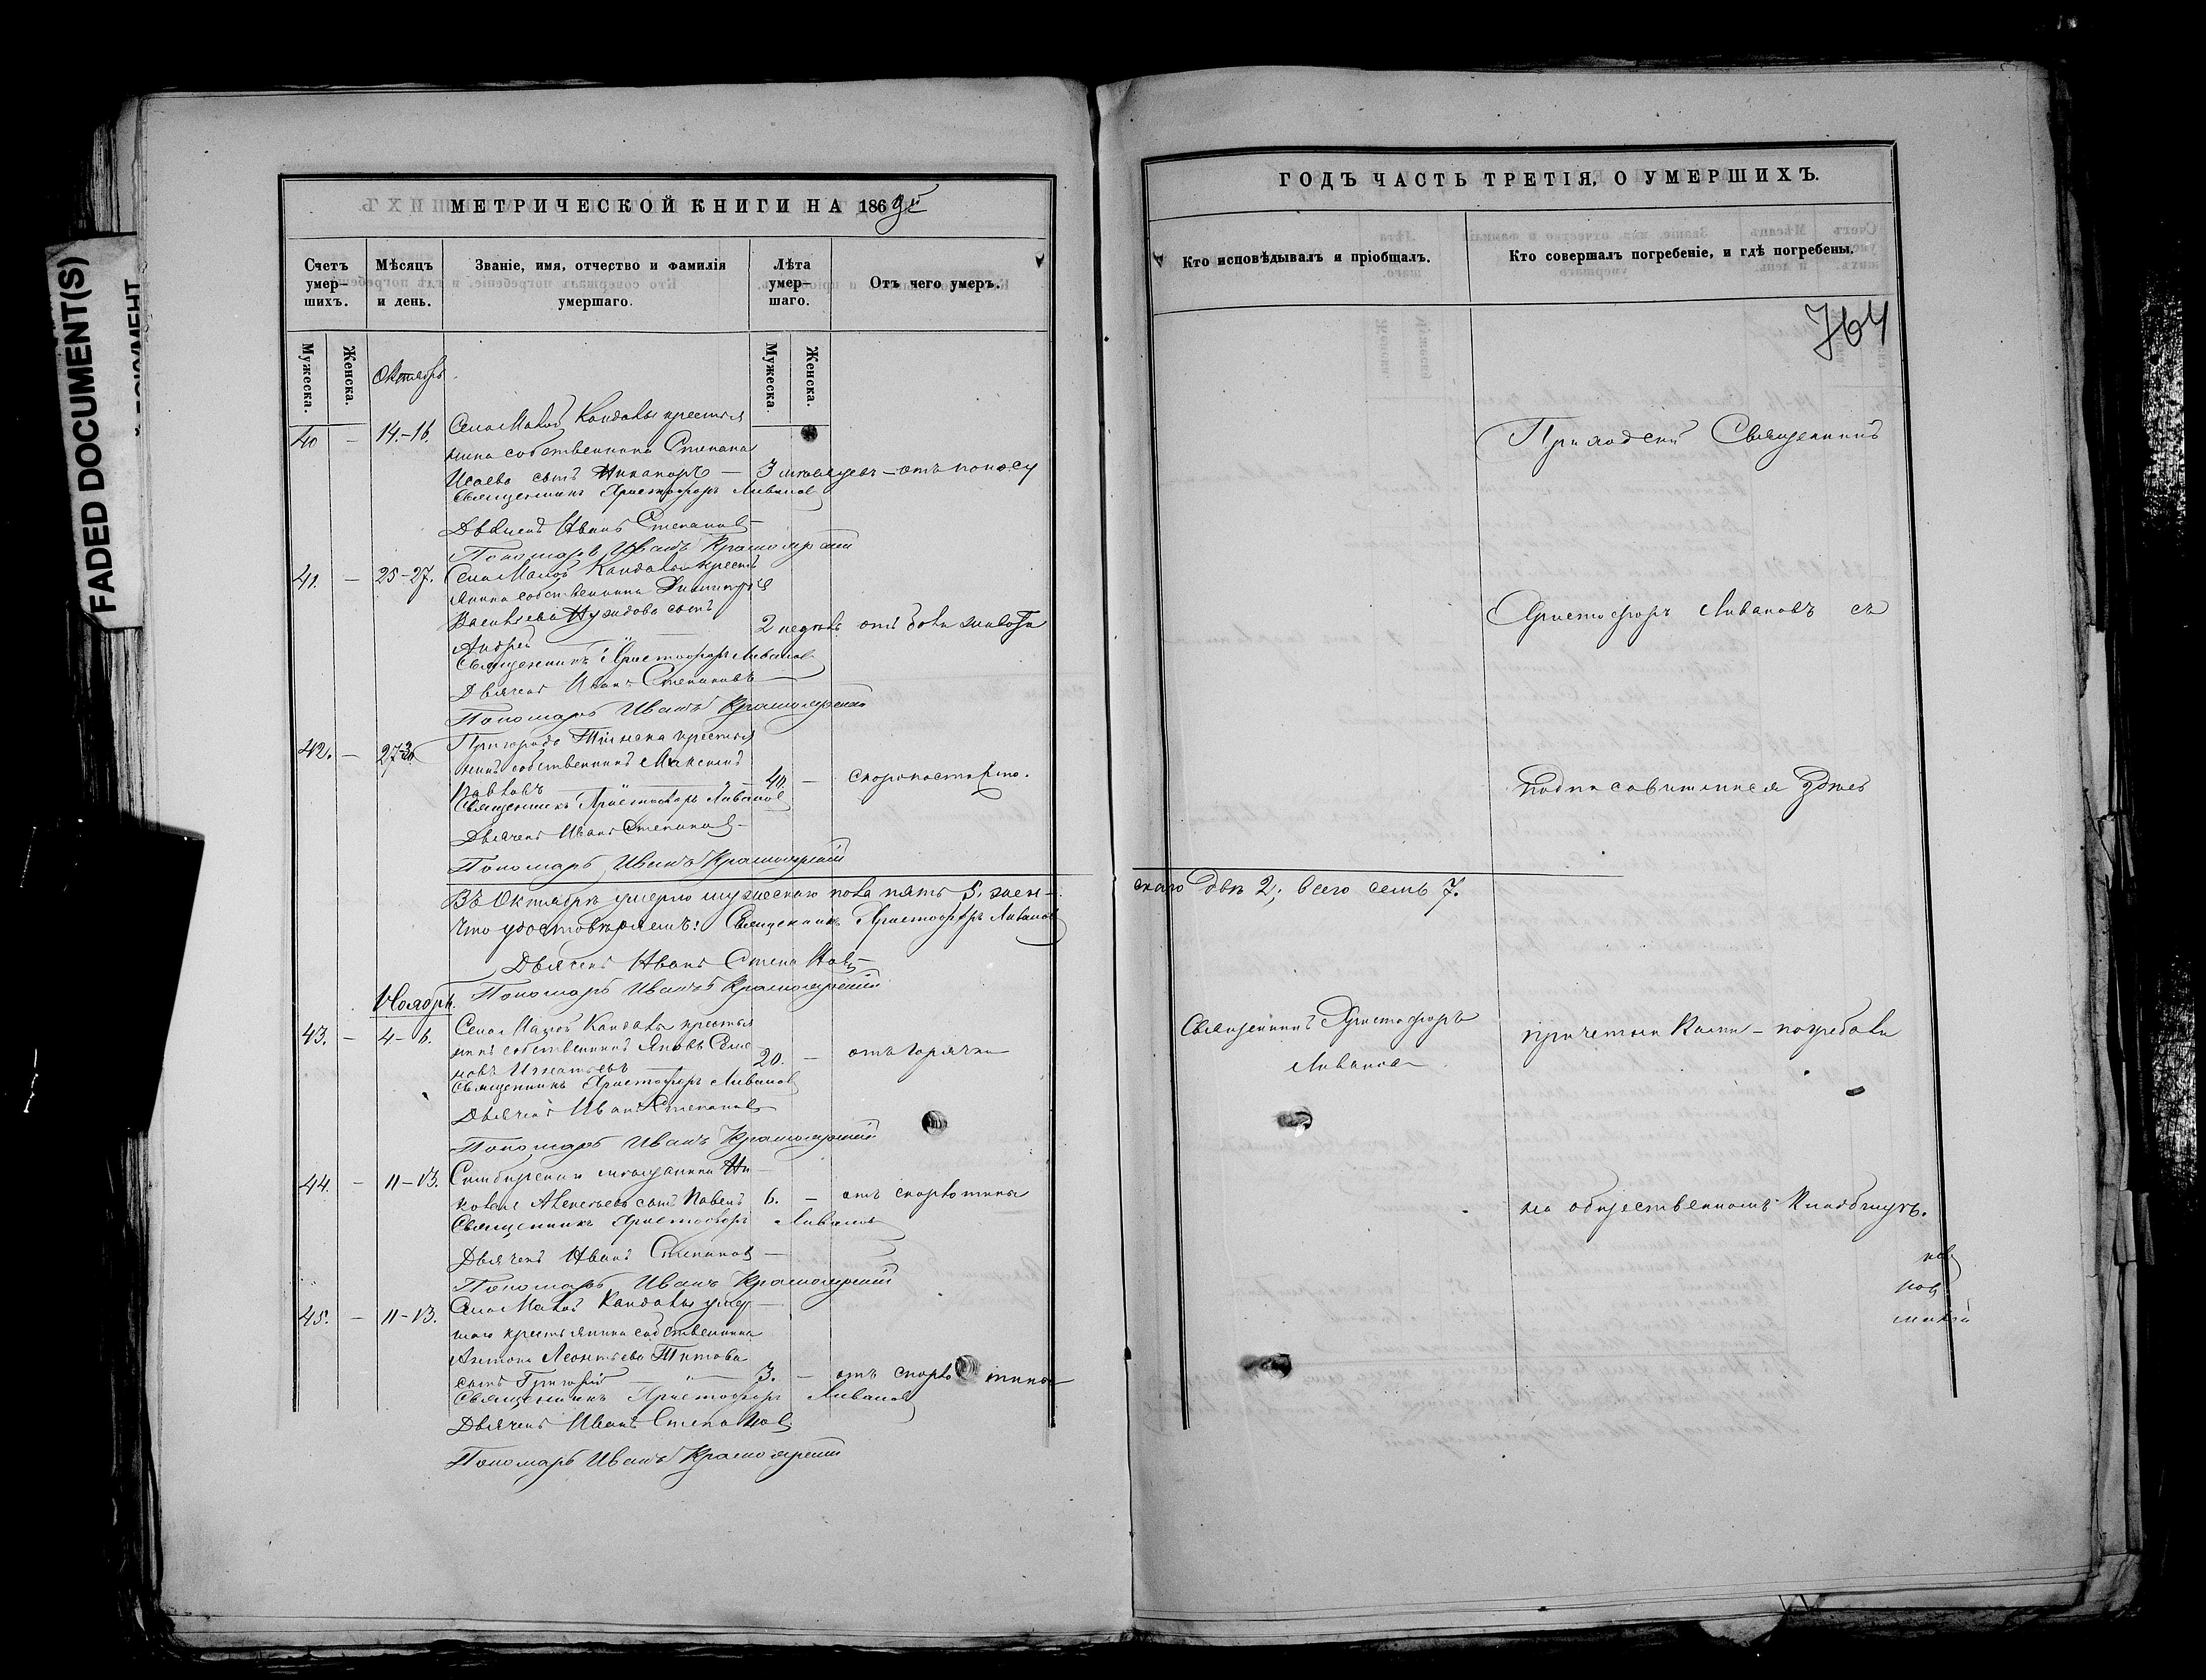 FADED DOCUMENT(S)
МЕТРИЧЕСКОЙ КНИГИ НА 1869й
Счетъ умер-шихъ.
Мѣсяцъ и день.
Званіе, имя, отчество и фамилія умершаго.
Лѣта умер-шаго.
Отъ чего умеръ.
Мужеска.
Женска.
Мужеска.
Женска.
Октябрь
40 – 14.–16. Села Малой Кандалы крестья
нина собственника Степана
Исаева сынъ Никаноръ – 3 мѣсяцевъ – отъ поносу
Священникъ Христофоръ Ливановъ
Дьячекъ Иванъ Степановъ
Пономарь Иванъ Красноярскій
41. – 25–27. Села Малой Кандалы крест
янина собственника Димитрія
Васильева Нуждова сынъ
Андрей – 2 недѣль отъ боли живота
Священникъ Христофоръ Ливановъ
Дьячекъ Иванъ Степановъ
Пономарь Иванъ Красноярскій
42. – 27–30 Пригорода Тіинска крестья
нинъ собственникъ Максимъ
Павловъ – 40. – скоропостижно.
Священникъ Христофоръ Ливановъ
Дьячекъ Иванъ Степановъ
Пономарь Иванъ Красноярскій
Въ Октябрѣ умерло мужескаго пола пять 5. жен–
Что удостовѣряемъ: Священникъ Христофоръ Ливановъ
Дьячекъ Иванъ Степановъ
Пономарь Иванъ Красноярскій
Ноябрь.
43. – 4–6. Села Малой Кандалы крестья
нинъ собственникъ Яковъ Семе
новъ Игнатьевъ – 20. – отъ горячки
Священникъ Христофоръ Ливановъ
Дьячекъ Иванъ Степановъ
Пономарь Иванъ Красноярскій
44. – 11–13. Симбирскаго мѣщанина Ни–
колая Алексѣева сынъ Павелъ 6. – отъ скорлотины
Священникъ Христофоръ Ливановъ
Дьячекъ Иванъ Степановъ –
Пономарь Иванъ Красноярскій
45. – 11–13. Села Малой Кандалы умер–
шаго крестьянина собственника
Антона Леонтьева Титова
сынъ Григорій – 3. – отъ скорлотины
Священникъ Христофоръ Ливановъ
Дьячекъ Иванъ Степановъ
Пономарь Иванъ Красноярскій
ГОДЪ ЧАСТЬ ТРЕТІЯ, О УМЕРШИХЪ.
Кто исповѣдывалъ и пріобщалъ.
Кто совершалъ погребеніе, и гдѣ погребены.
764
Приходскій Священникъ
Христофоръ Ливановъ съ
подписавшимися здѣсь
скаго двѣ 2; всего семь 7.
Священникъ Христофоръ
Ливановъ
причетниками – погребали
на общественномъ кладбищѣ.